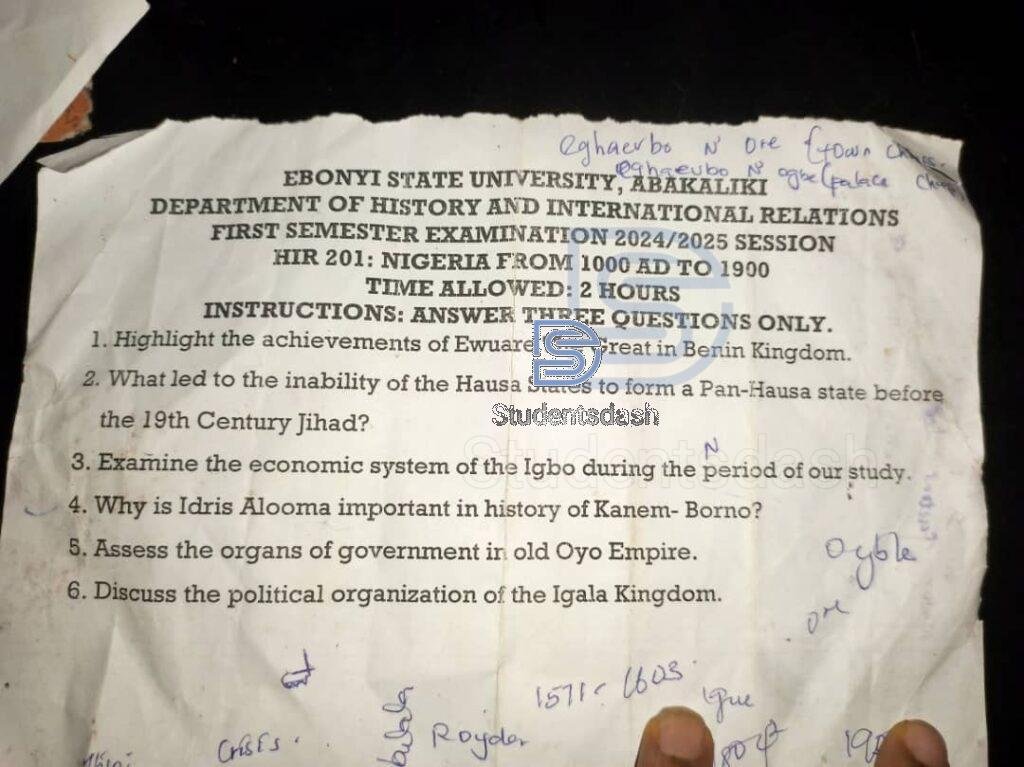 eghaevbo N' Ore (town chiefs.
eghaevbo N' ogbe (palace
EBONYI STATE UNIVERSITY, ABAKALIKI
DEPARTMENT OF HISTORY AND INTERNATIONAL RELATIONS
FIRST SEMESTER EXAMINATION 2024/2025 SESSION
HIR 201: NIGERIA FROM 1000 AD TO 1900
TIME ALLOWED: 2 HOURS
INSTRUCTIONS: ANSWER THREE QUESTIONS ONLY.
1. Highlight the achievements of Ewuare Great in Benin Kingdom.
2. What led to the inability of the Hausa States to form a Pan-Hausa state before
the 19th Century Jihad?
Studentsdash
Studentsdash
N
3. Examine the economic system of the Igbo during the period of our study.
4. Why is Idris Alooma important in history of Kanem- Borno?
5. Assess the organs of government in old Oyo Empire.
6. Discuss the political organization of the Igala Kingdom.
ore
1571- 1603
Igue
Crisis.
Bulala
1804